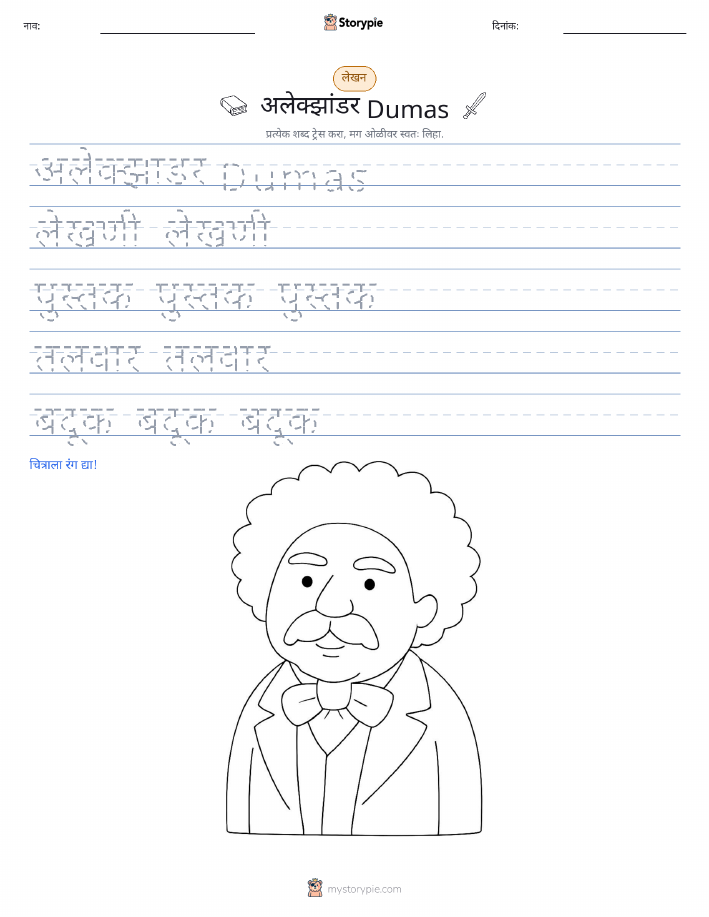 नाव:
Storypie
दिनांक:
लेखन
अलेक्झांडर Dumas
प्रत्येक शब्द ट्रेस करा, मग ओळीवर स्वतः लिहा.
अलेक्झांडर Dumas
लेखणी लेखणी
पुस्तक पुस्तक पुस्तक
तलवार तलवार
बंदूक बंदूक बंदूक
चित्राला रंग द्या!
mystorypie.com